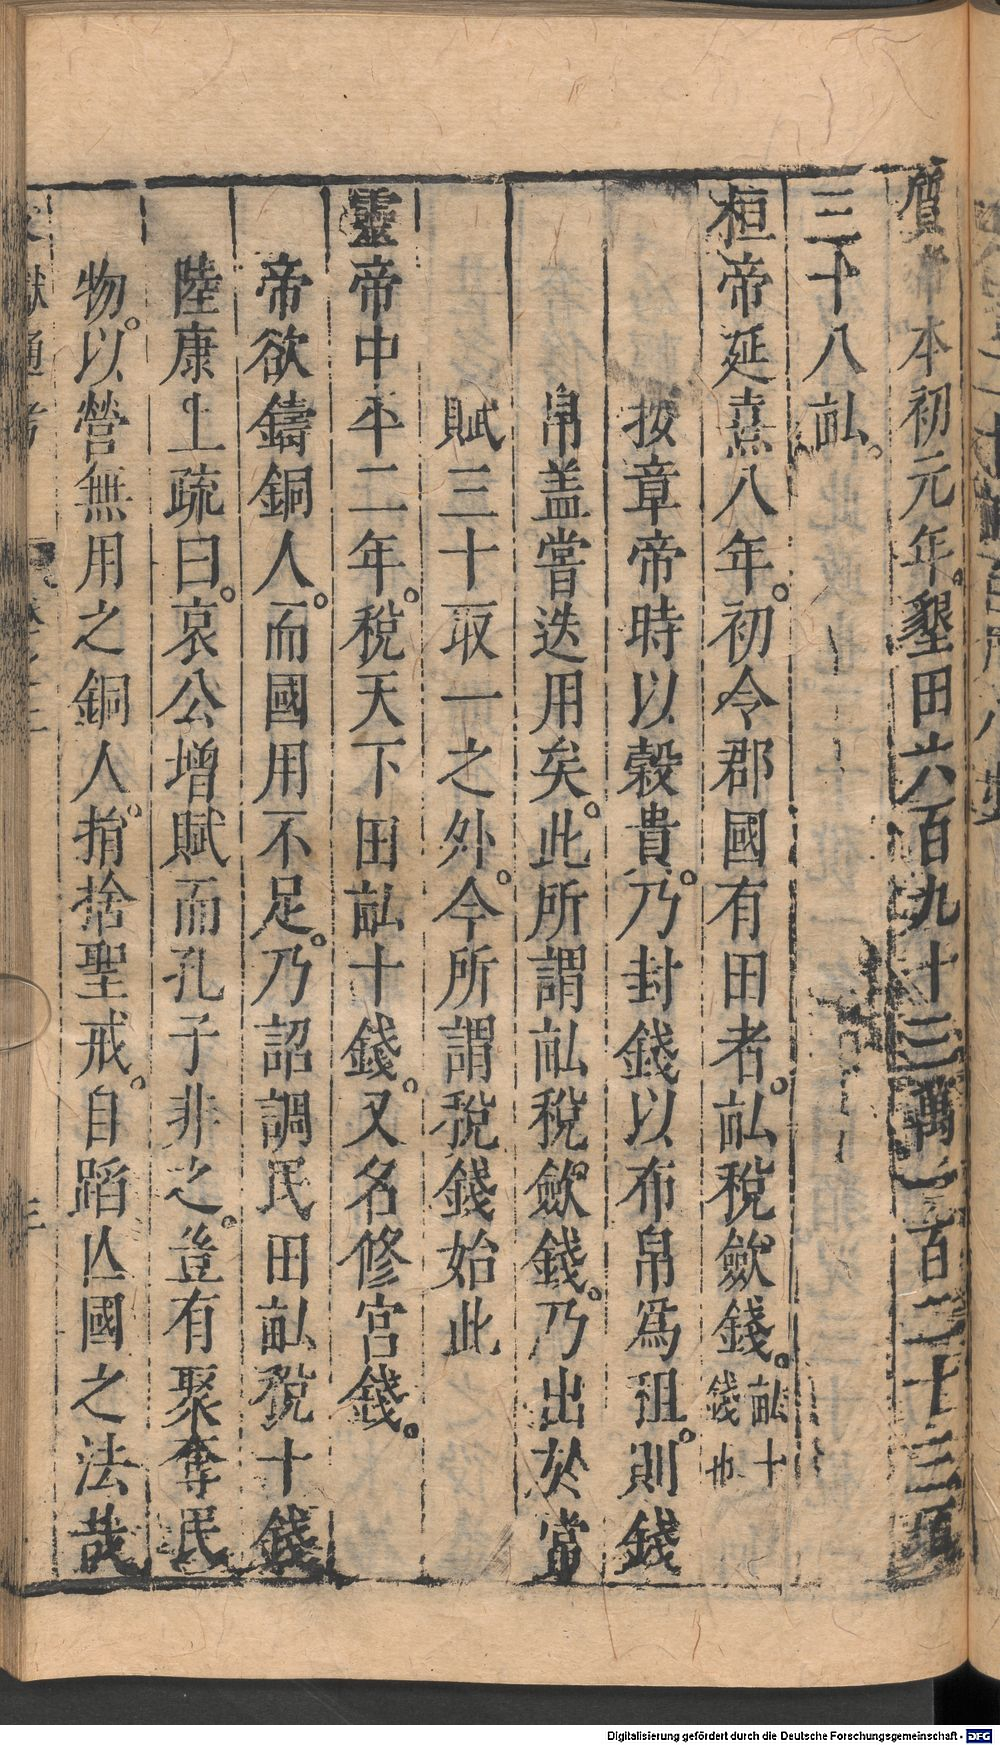 質帝本初元年墾田六百九十三萬七百二十三頃
三十八畝
桓帝延熹八年初令郡國有田者畝稅斂錢畝十錢也
按章帝時以穀貴乃封錢以布帛爲租則錢
帛盖嘗迭用矣此所謂畝稅斂錢乃出於常
賦三十取一之外今所謂稅錢始此
靈帝中平二年稅天下田畝十錢又名修宮錢
帝欲鑄銅人而國用不足乃詔調民田畝稅十錢
陸康上疏曰哀公增賦而孔子非之豈有聚奪民
物以營無用之銅人捐捨聖戒自蹈亾國之法哉
獻通考
Digitalisierung gefördert durch die Deutsche Forschungsgemeinschaft - DFG